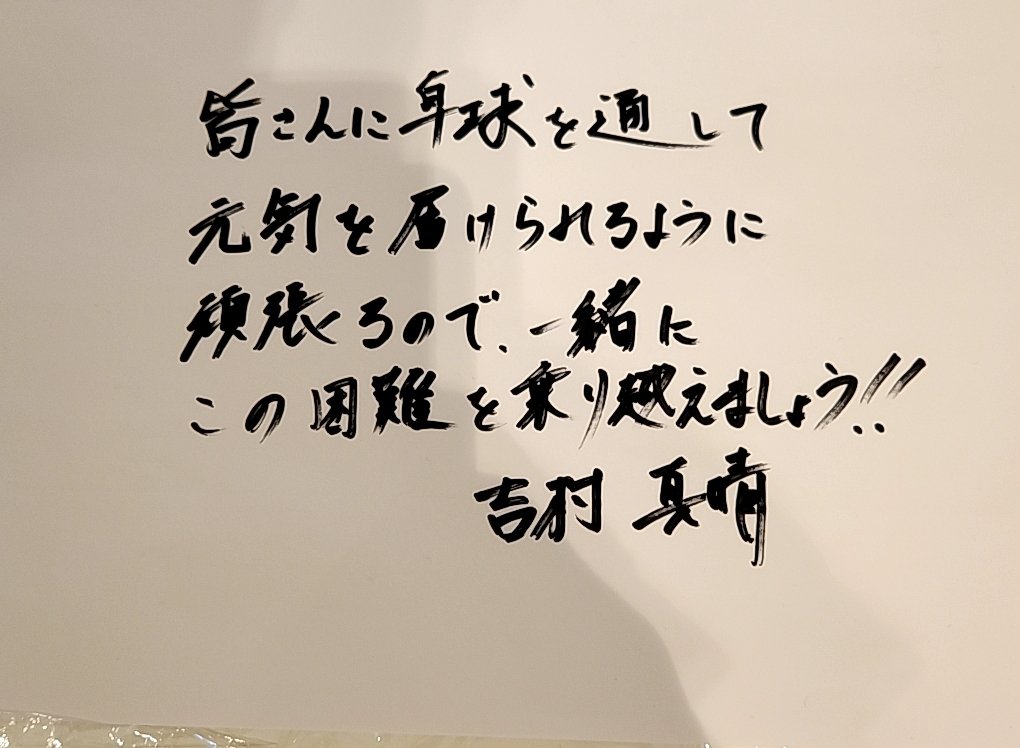 皆さんに卓球を通して
元気を届けられるように
頑張るので、一緒に
この困難を乗り越えましょう!!
吉村 真晴